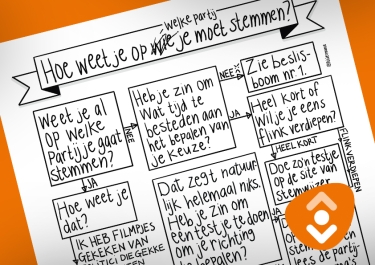 welke partij
Hoe weet je op wie je moet stemmen?
Weet je al
op welke
Partij je gaat
stemmen?
NEE
JA
Heb je zin om
Wat tijd te
besteden aan
het bepalen van
je keuze?
NEE
JA
Zie beslis-
boom nr 1.
Heel kort of
Wil je je eens
flink verdiepen?
HEEL KORT
FLINK VERDIEPEN
Doe zo'n testje
op de site van
stemwijzer
Hoe weet je
dat?
IK HEB FILMPJES
GEKEKEN VAN
DIE GEKKE
Dat zegt natuur-
lijk helemaal niks.
Heb je zin om
een testje te doen
om je richting
te bepalen?
JA
lees de
partij-